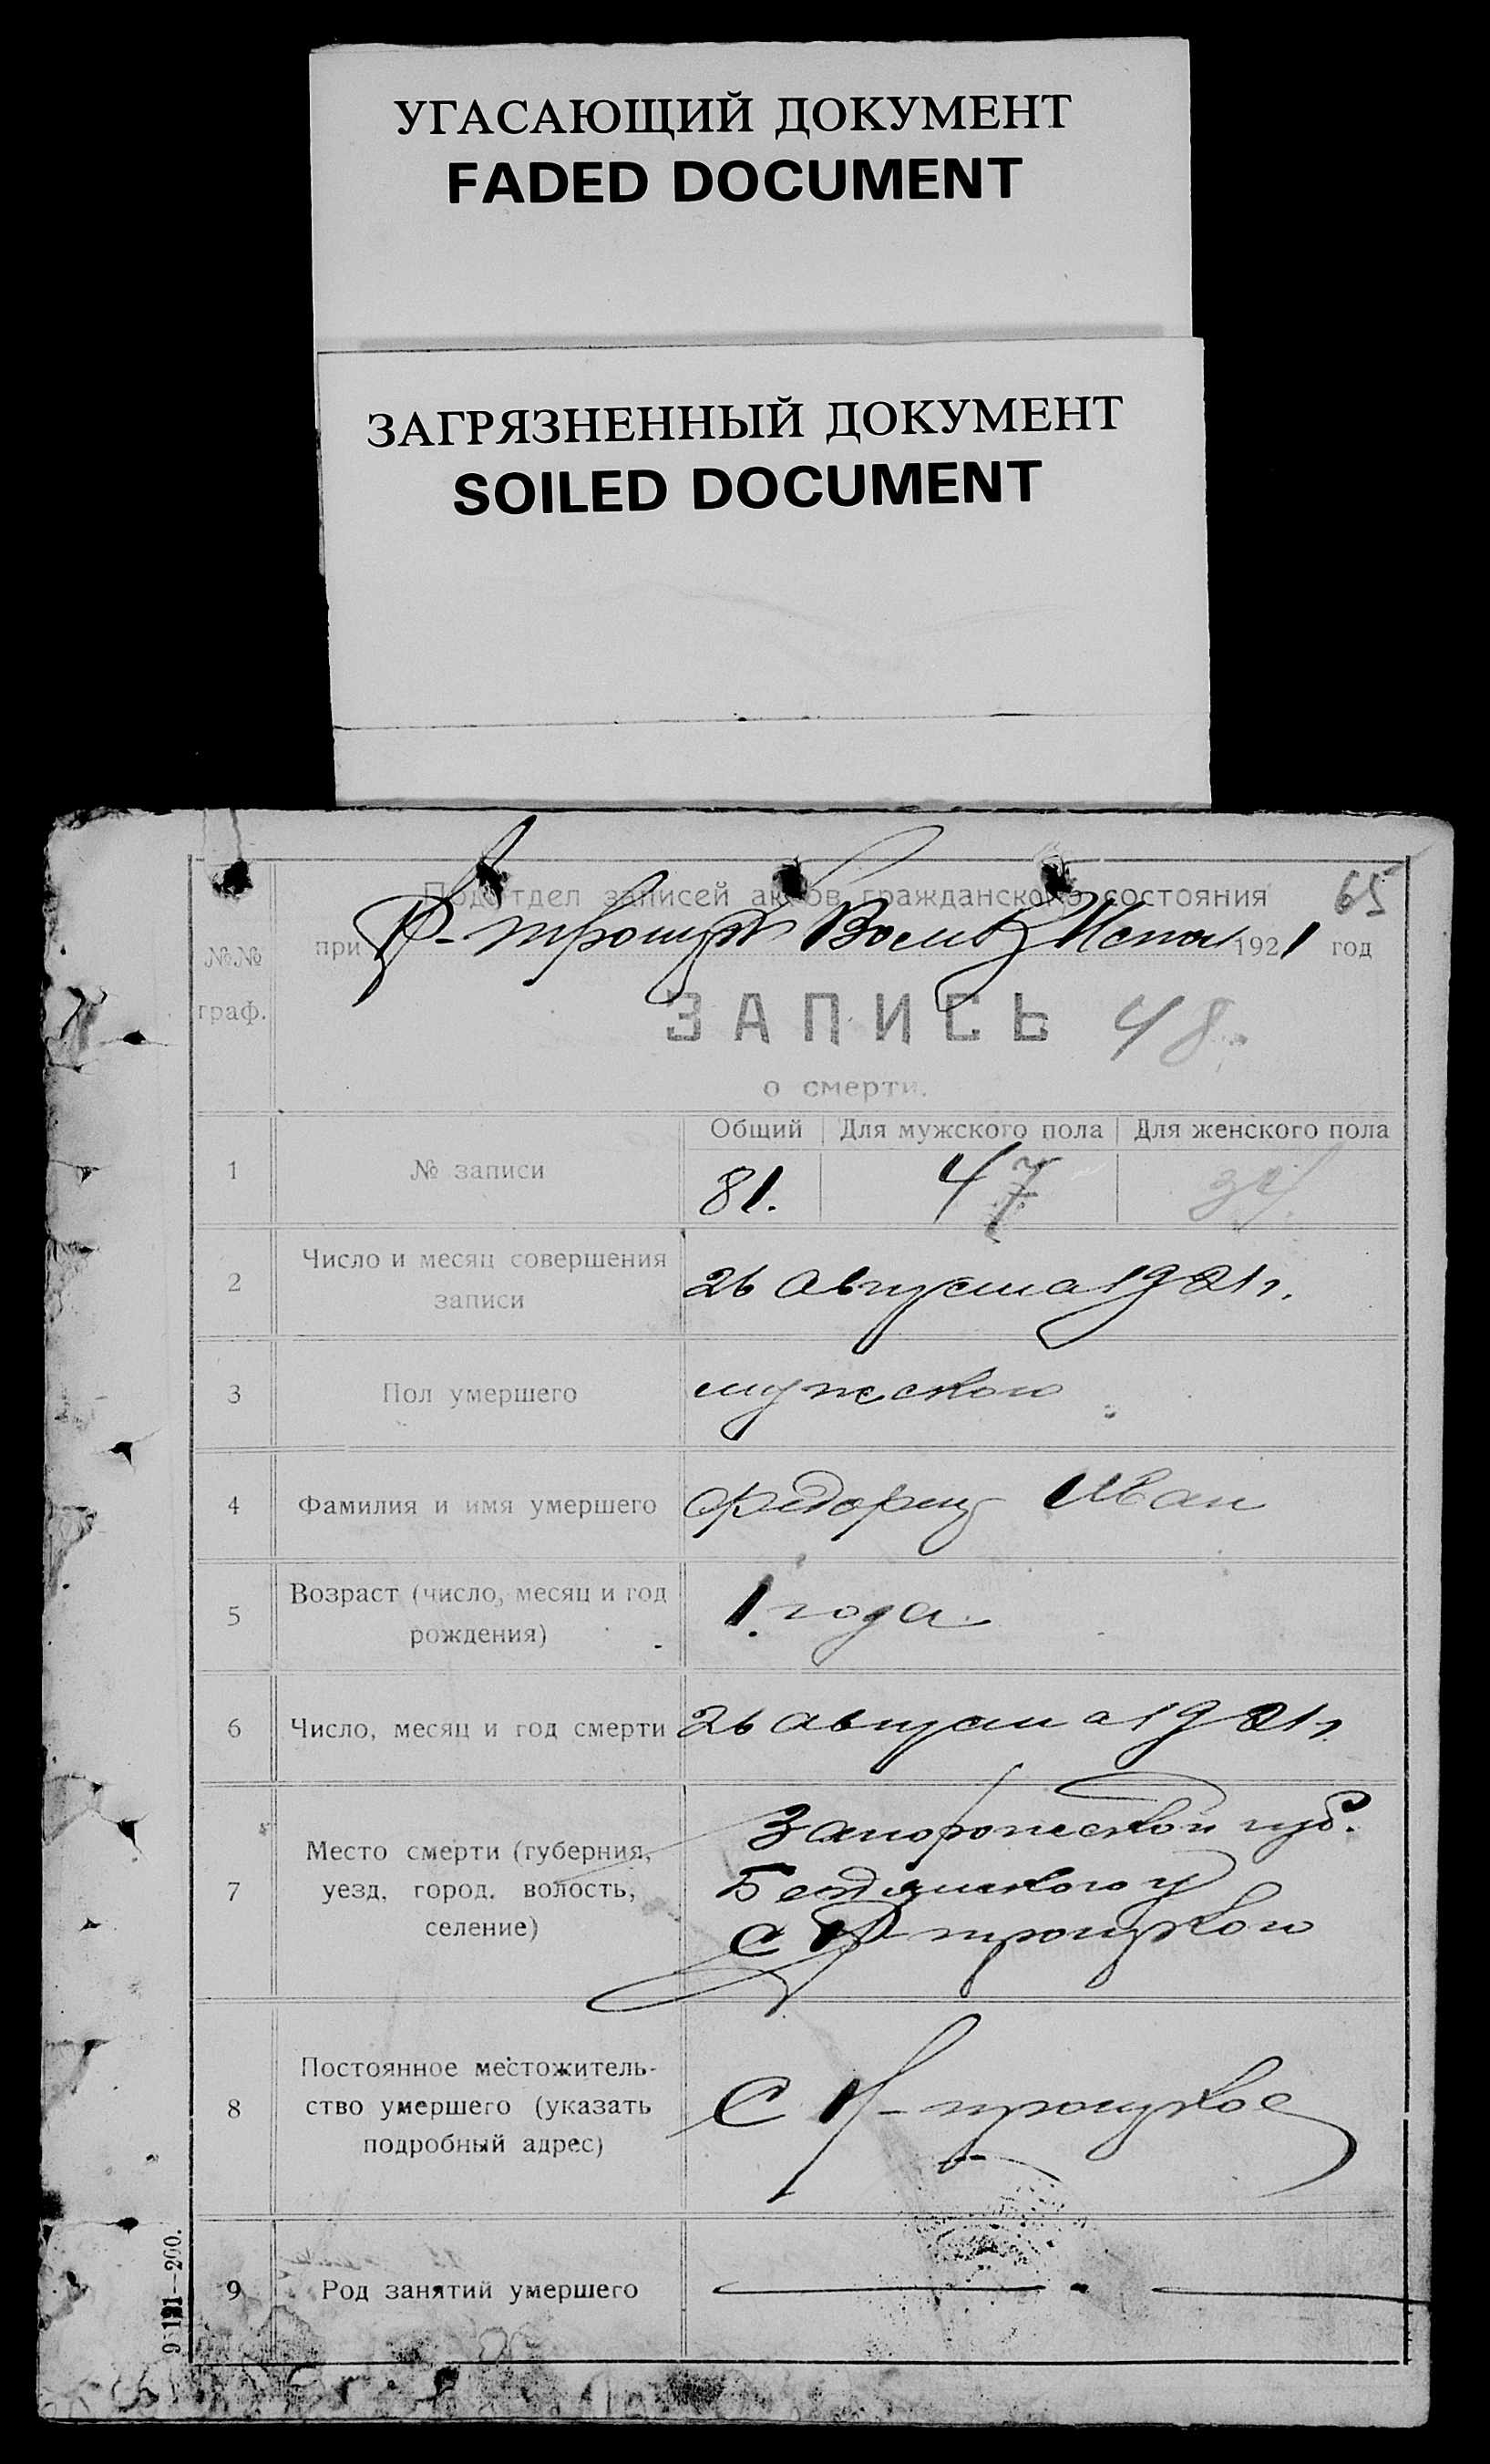 УГАСАЮЩИЙ ДОКУМЕНТ
FADED DOCUMENT
ЗАГРЯЗНЕННЫЙ ДОКУМЕНТ
SOILED DOCUMENT
Подотдел записей актов гражданского состояния 65
№№ при Р-троицк 1921 год
граф.
ЗАПИСЬ 48.
о смерти.
Общий Для мужского пола Для женского пола
1 № записи 81. 47 34.
2 Число и месяц совершения
записи 26 августа 1921 г.
3 Пол умершего мужского
4 Фамилия и имя умершего Иван
5 Возраст (число, месяц и год
рождения) 1. года.
6 Число, месяц и год смерти 26 августа 1921 г.
Запорожской губ.
Место смерти (губерния,
7 уезд, город, волость, Бердянского у
селение) С Р-троицкого
Постоянное местожитель-
8 ство умершего (указать С Р-троицкое
подробный адрес)
9 Род занятий умершего